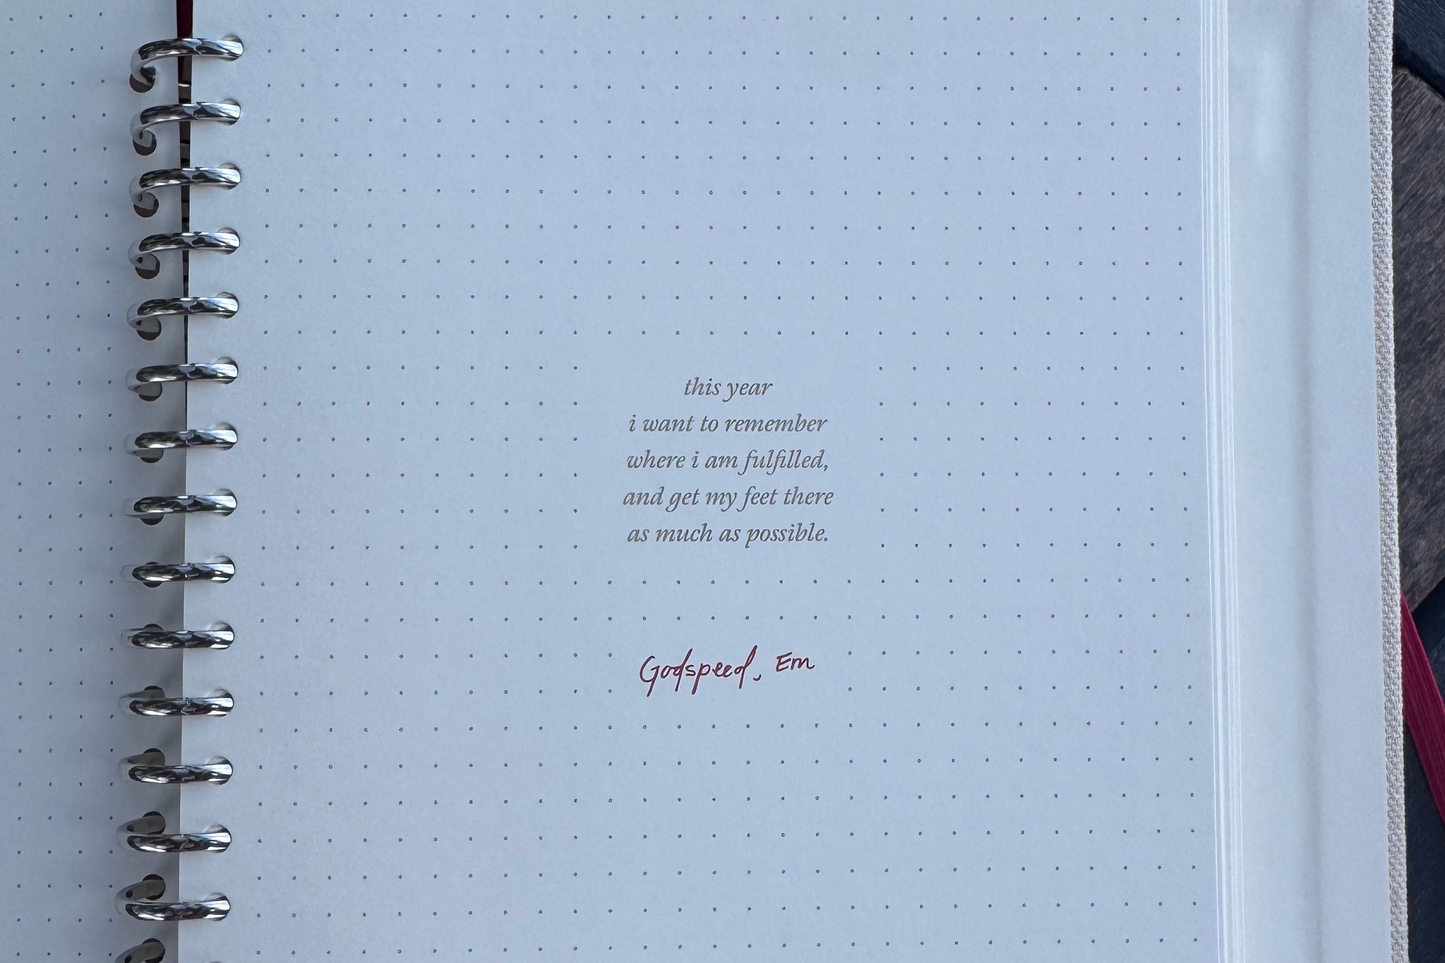 this year
i want to remember
where i am fulfilled,
and get my feet there
as much as possible.
Godspeed, Em